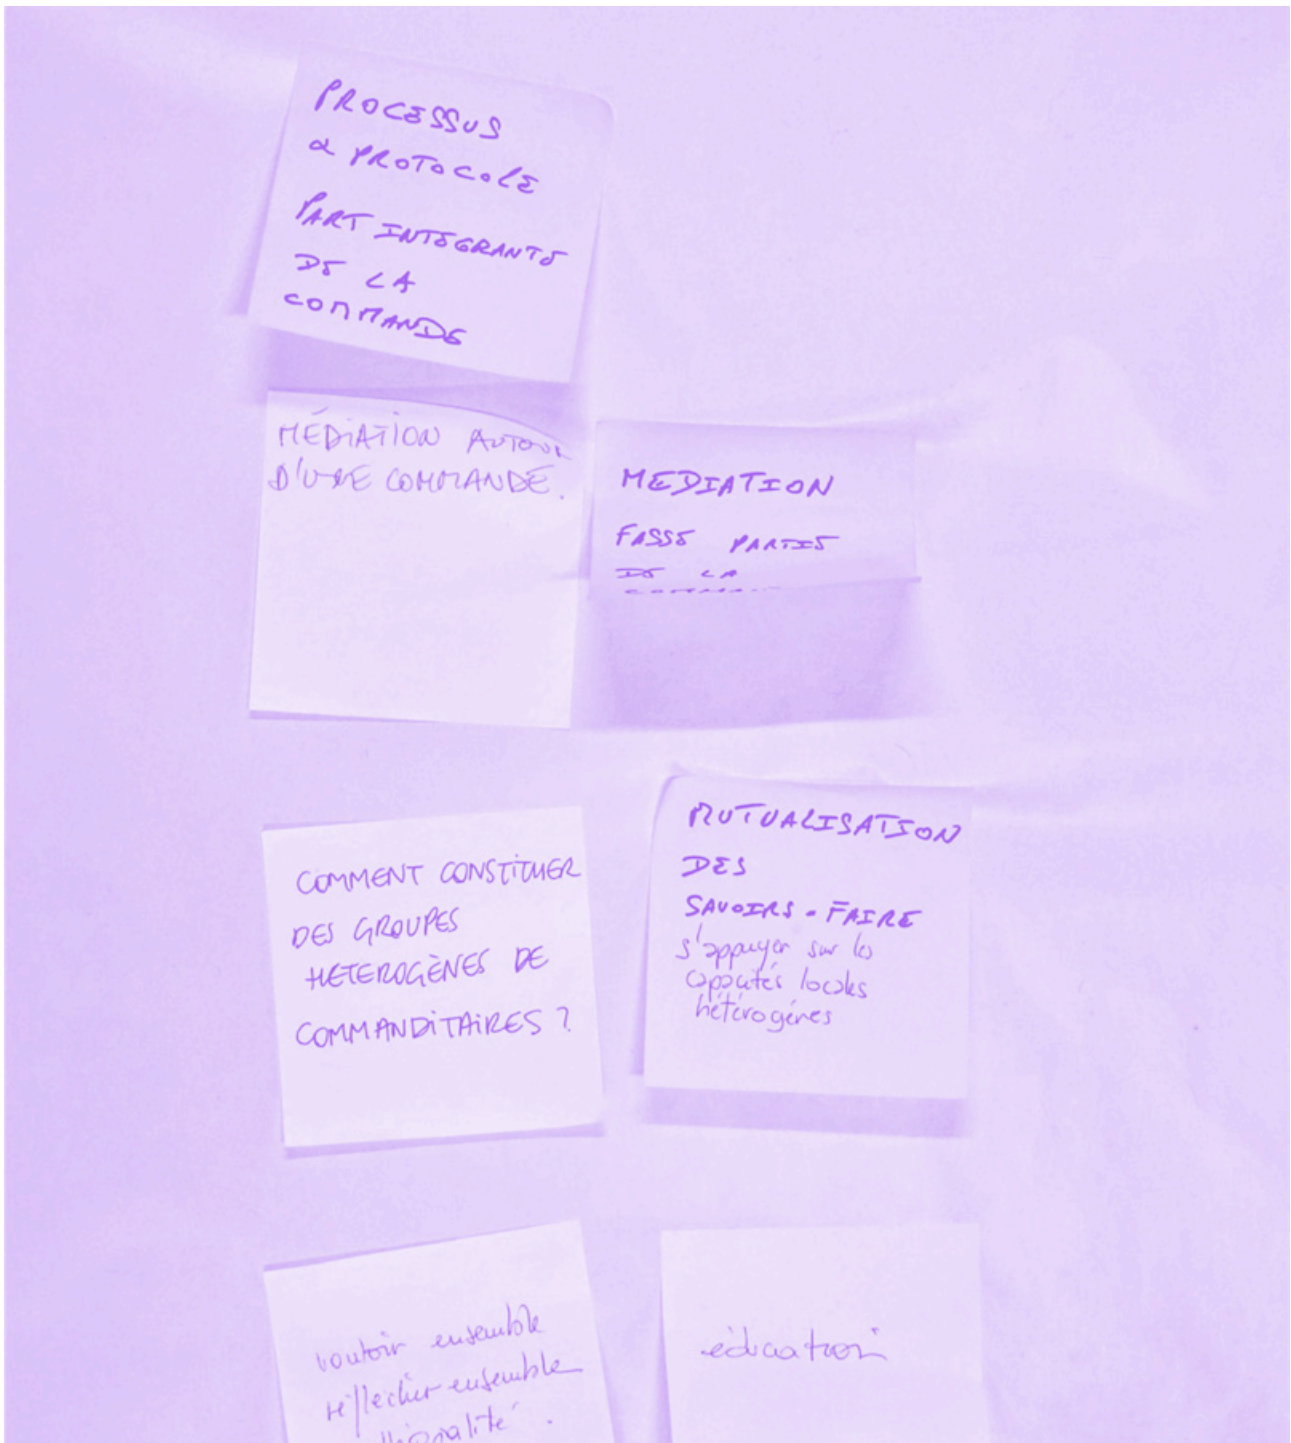 PROCESSUS
& PROTOCOLE
PART INTEGRANTE
DE LA
COMMANDE
MÉDIATION AUTOUR
D'UNE COMMANDE.
MEDIATION
FASSE PARTIE
DE LA
COMMENT CONSTITUER
DES GROUPES
HETEROGÈNES DE
COMMANDITAIRES ?
MUTUALISATION
DES
SAVOIRS-FAIRE
s'appuyer sur les
capacités locales
hétérogènes
vouloir ensemble
réflechir ensemble
éducation